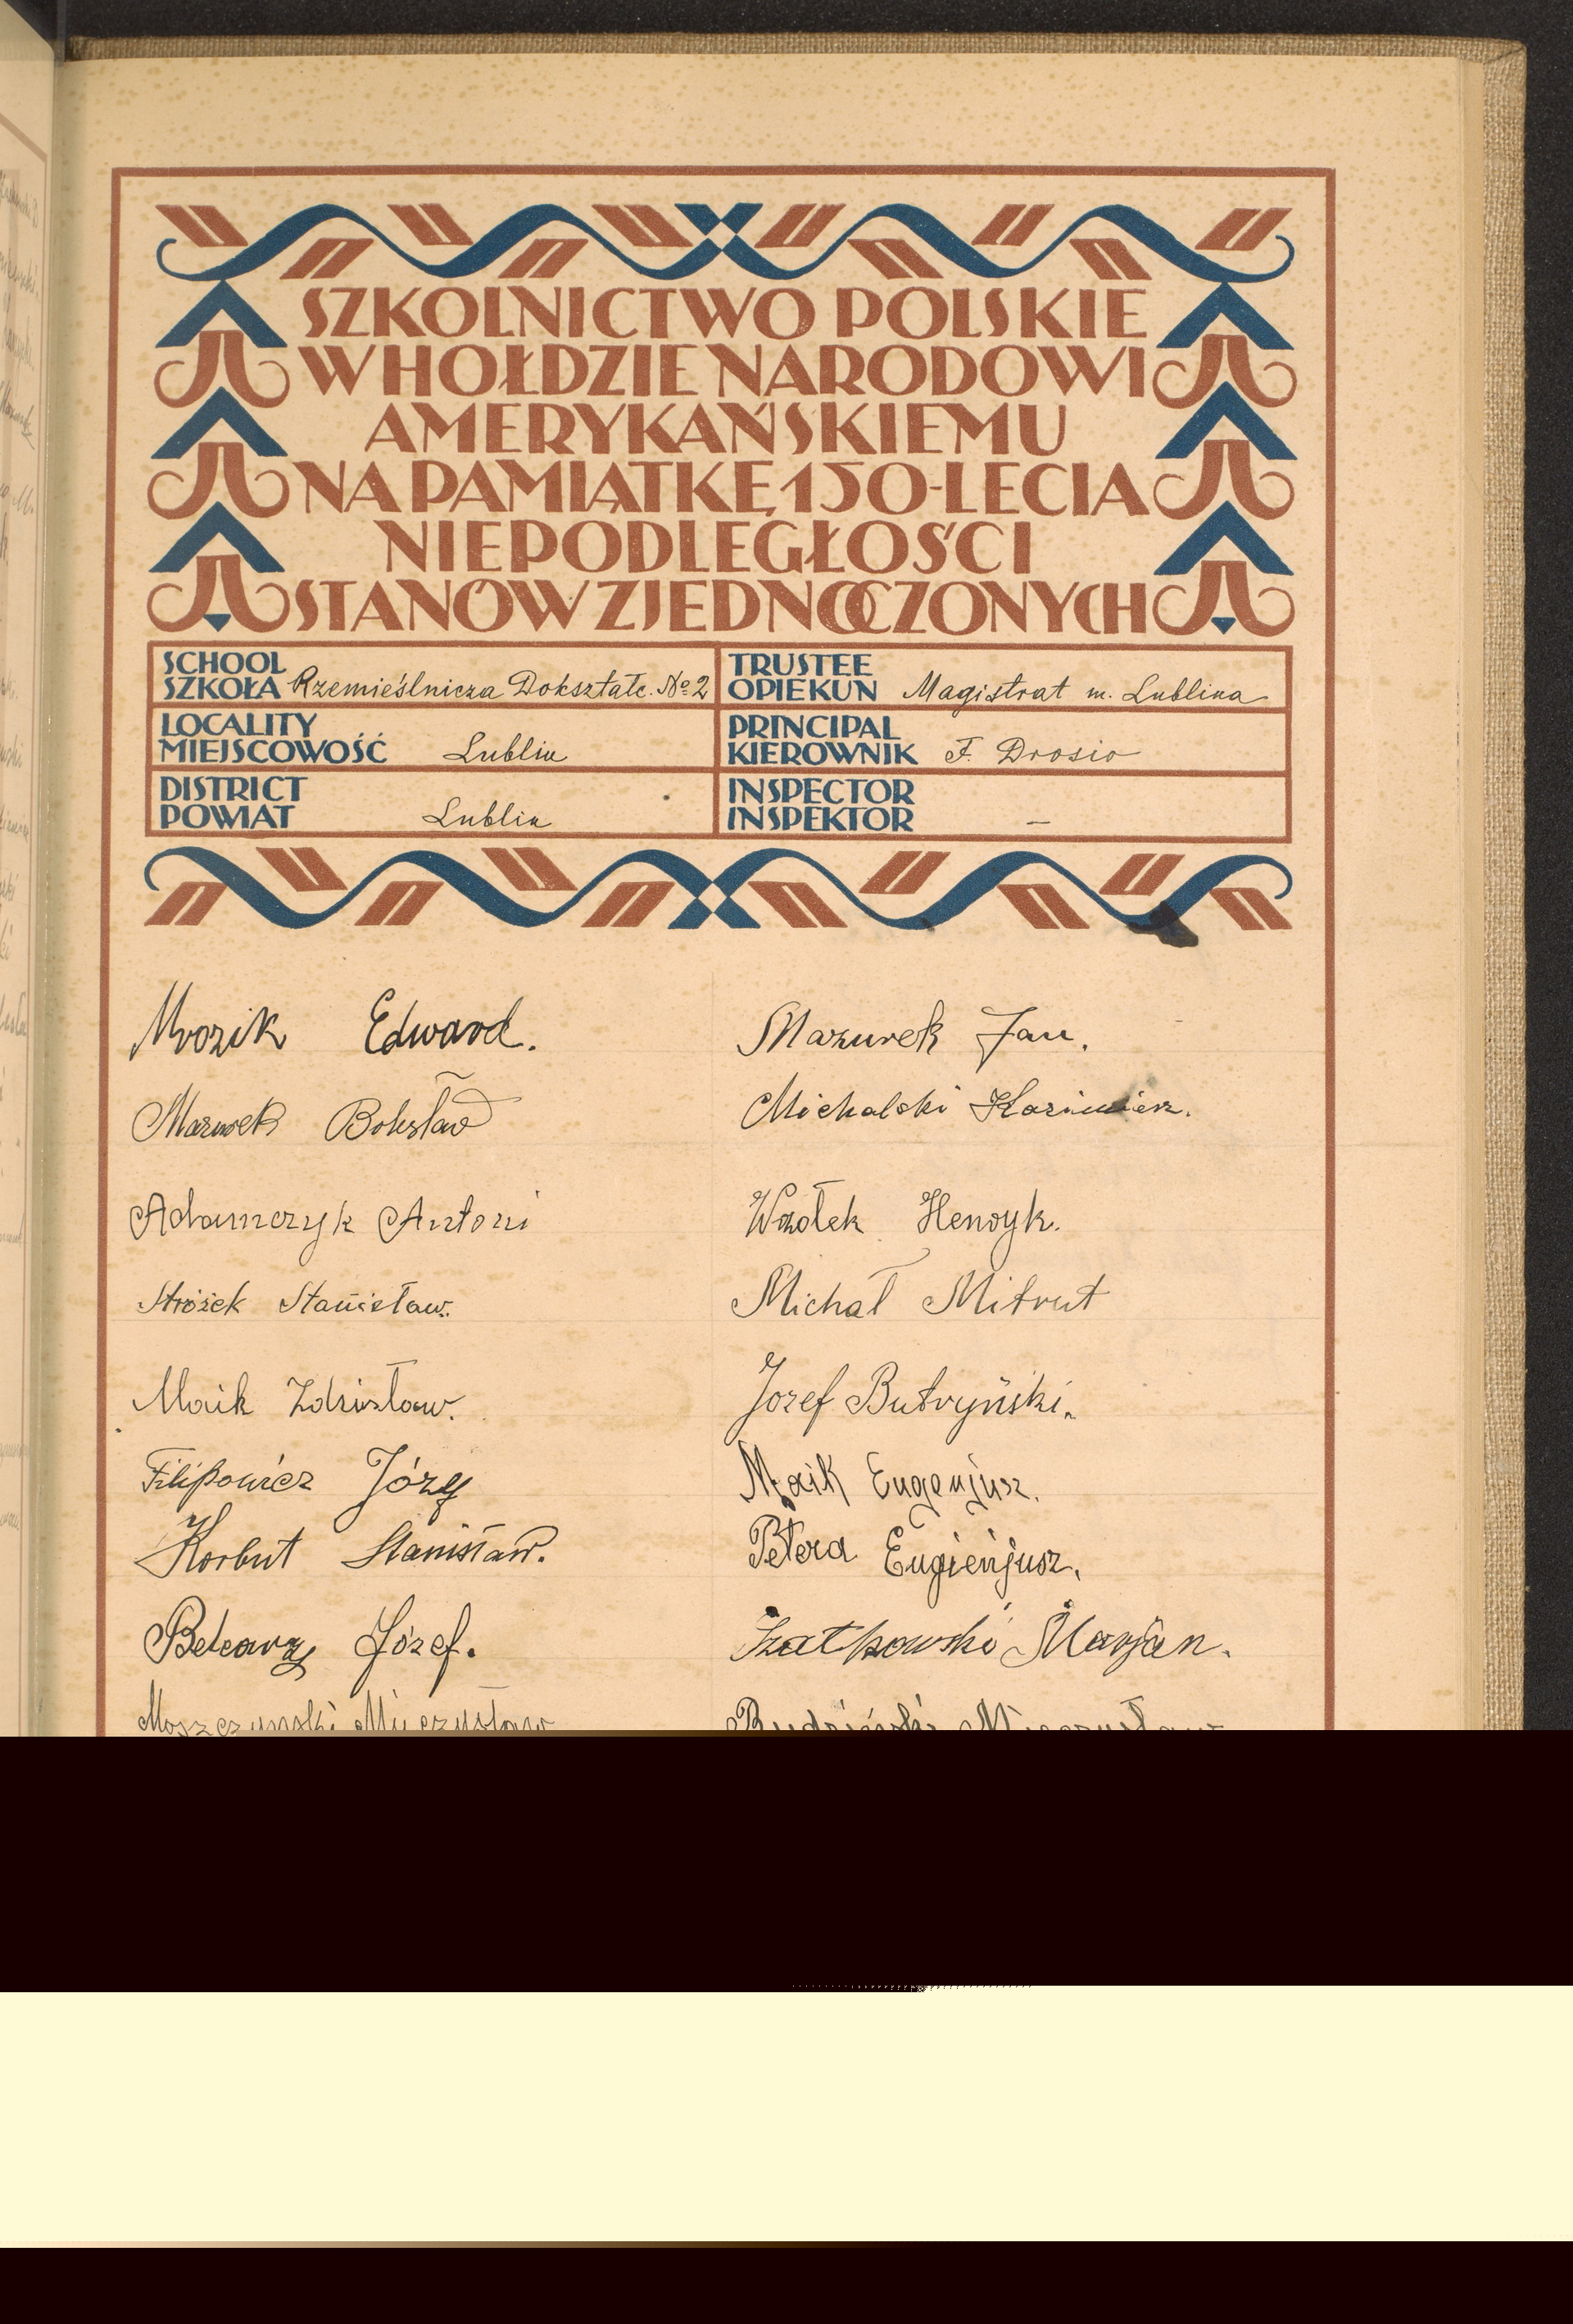 SZKOLNICTWO POLSKIE
W HOŁDZIE NARODOWI
AMERYKAŃSKIEMU
NA PAMIĄTKĘ 150-LECIA
NIEPODLEGŁOŚCI
STANÓW ZJEDNOCZONYCH
SCHOOL
SZKOŁA Rzemieślnicza Dokształc. No 2
TRUSTEE
OPIEKUN Magistrat m. Lublina
LOCALITY
MIEJSCOWOŚĆ Lublin
PRINCIPAL
KIEROWNIK F. Drosio
DISTRICT
POWIAT Lublin
INSPECTOR
INSPEKTOR —
Mrozik Edward.
Mazurek Bolesław
Adamczyk Antoni
Stróżek Stanisław.
Maik Zdzisław.
Filipowicz Józef
Korbut Stanisław.
Józef.
Moszczyński Mieczysław
Mazurek Jan.
Michalski Kazimierz.
Wziołek Henryk.
Michał Mitrut
Jozef Butryński.
Maik Eugenjusz.
Petera Eugienjusz.
Szatkowski Marjan.
Budziński Mieczysław